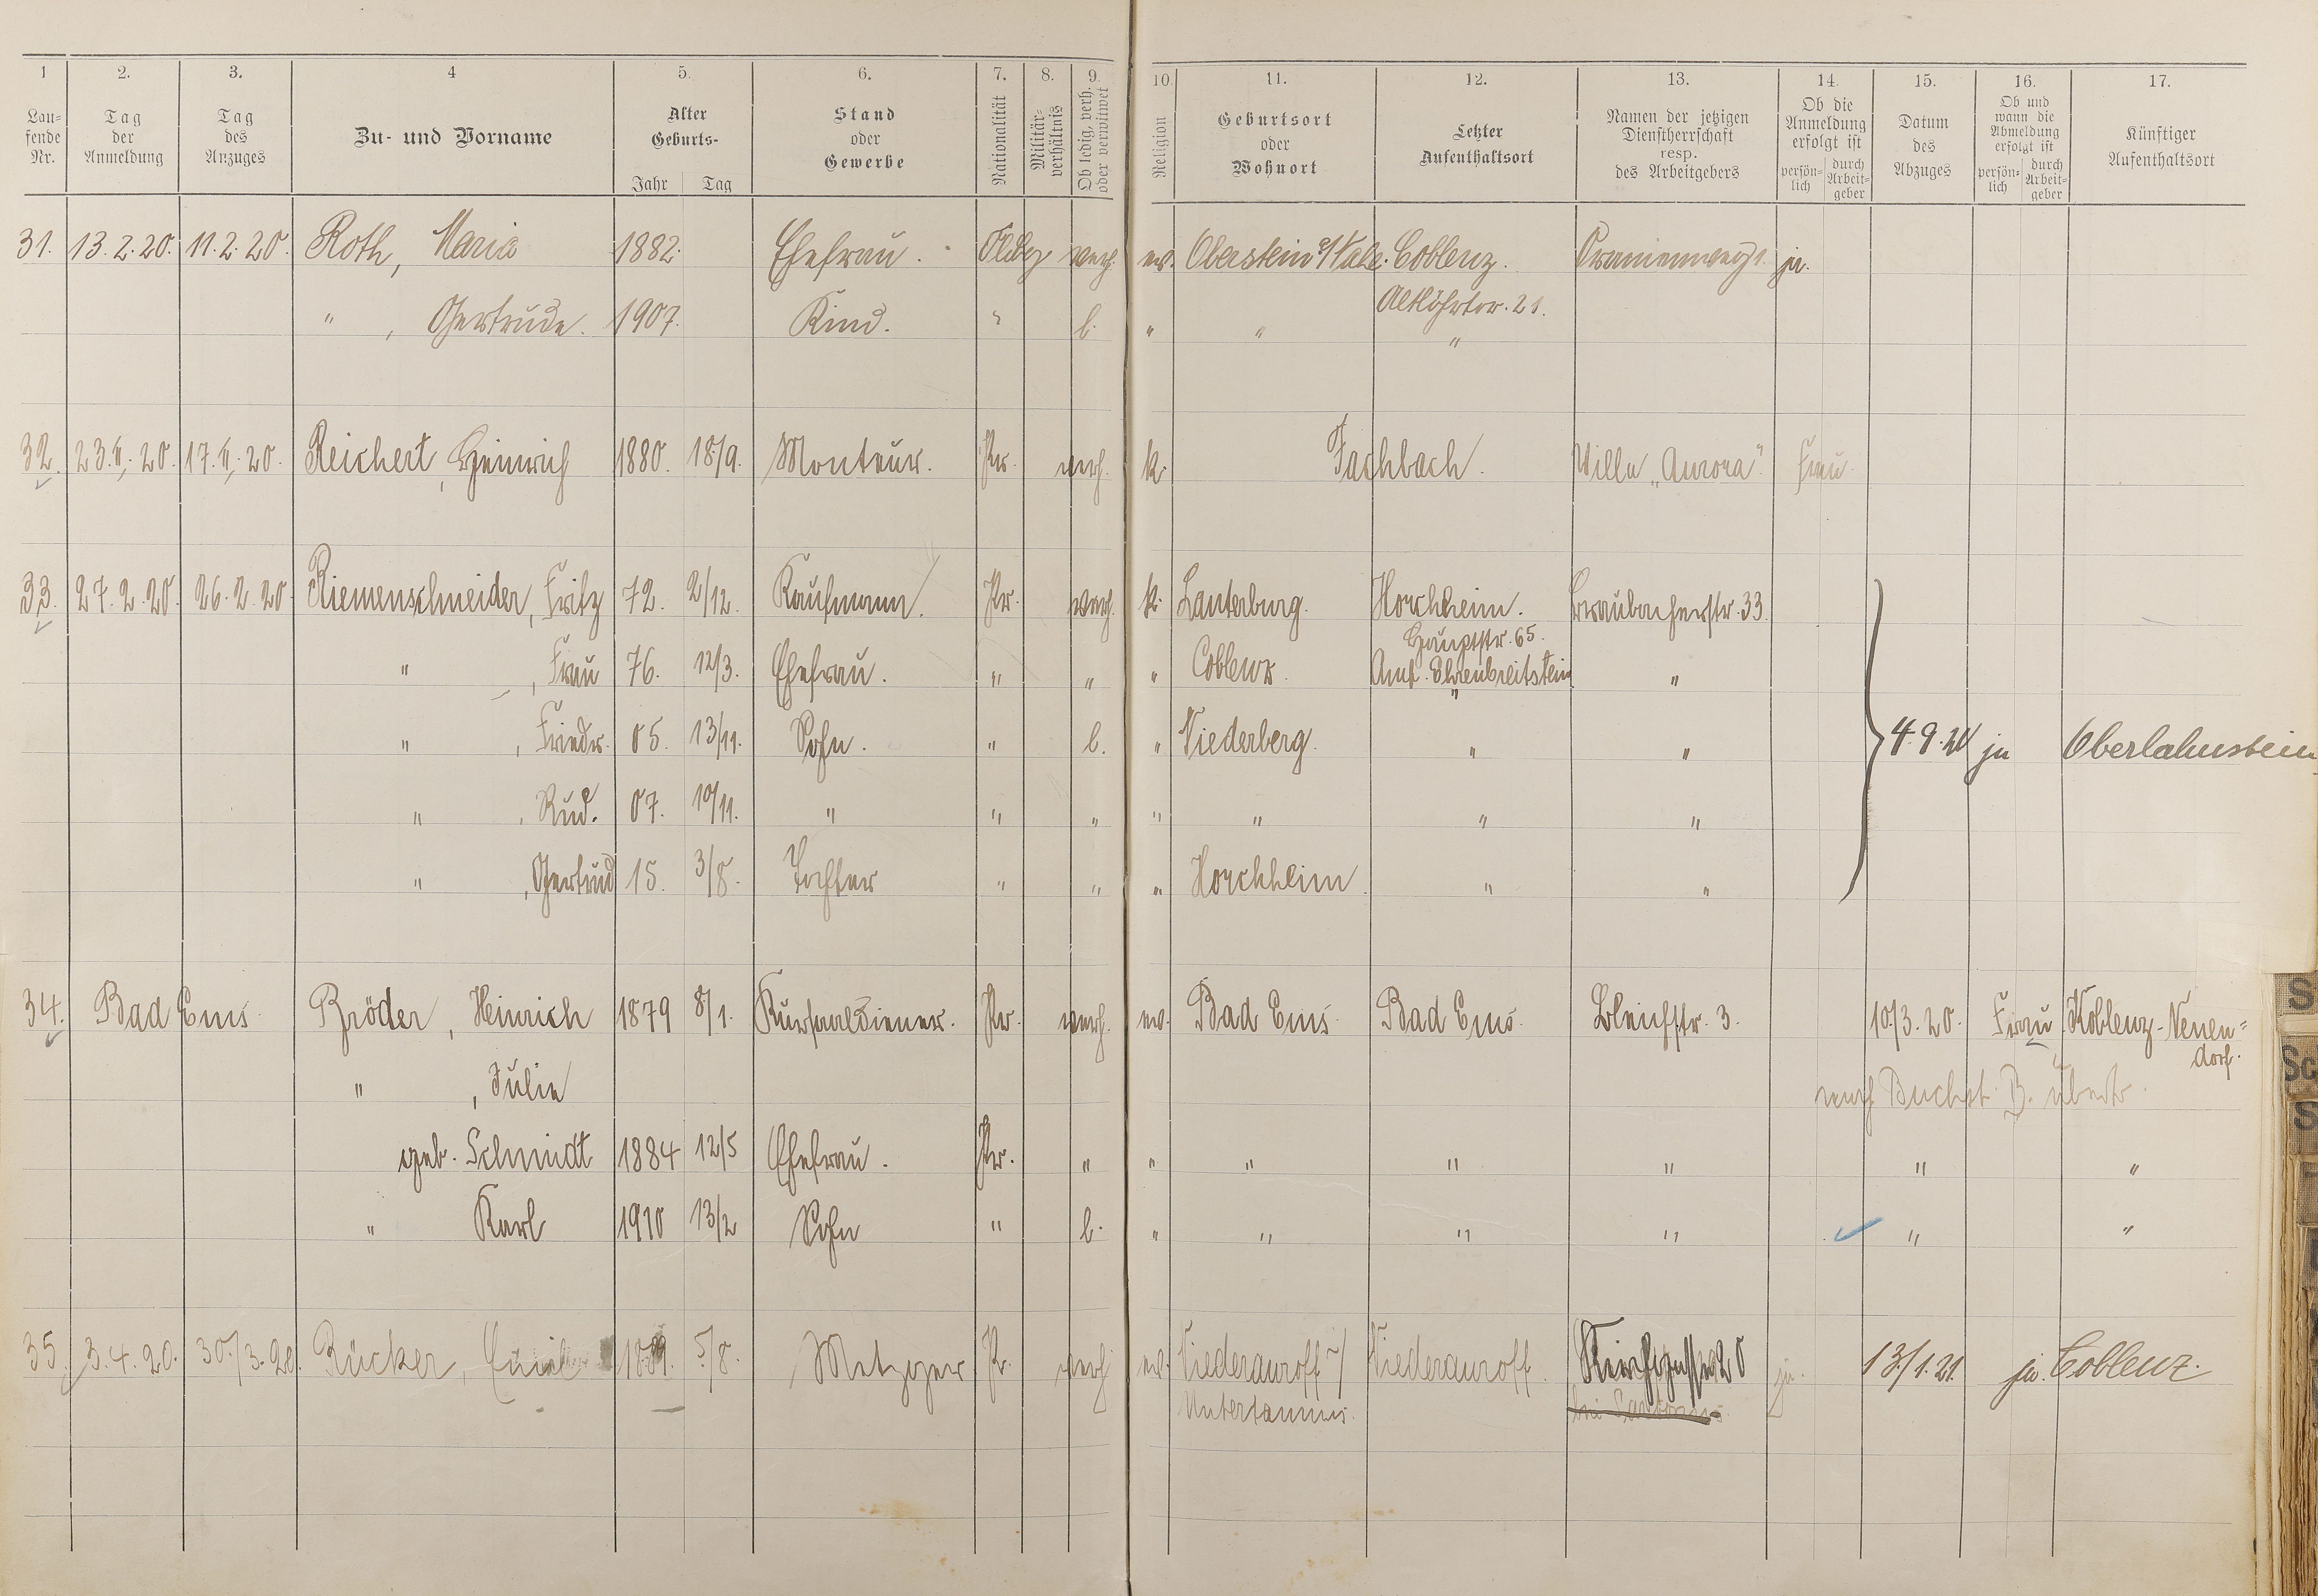 1 2. 3. 4 5. 6. 7. 8. 9. 10. 11. 12. 13. 14. 15. 16. 17.
Lau-
fende
Nr.
Tag
der
Anmeldung
Tag
des
Anzuges
Zu- und Vorname
Alter
Geburts-
Jahr Tag
Stand
oder
Gewerbe
Nationalität
Militär-
verhältnis
Ob ledig, verh.
oder verwitwet
Religion
Geburtsort
oder
Wohnort
Letzter
Aufenthaltsort
Namen der jetzigen
Dienstherrschaft
resp.
des Arbeitgebers
Ob die
Anmeldung
erfolgt ist
persön-
lich
durch
Arbeit-
geber
Datum
des
Abzuges
Ob und
wann die
Abmeldung
erfolgt ist
persön-
lich
durch
Arbeit-
geber
Künftiger
Aufenthaltsort
31. 13.2.20. 11.2.20. Roth, Maria 1882. Ehefrau. Oldbg verh. ev. Oberstein Coblenz. ja.
Altlöhrtor. 21.
" , Gertrude. 1907. Kind. " l. " " "
32. 23.II.20. 17.II.20. Reichert, Heinrich 1880. 18/9. Monteur. Pr. verh. k. Fachbach. Villa „Aurora" Frau
33. 27.2.20. 26.2.20 Riemenschneider, Fritz 72. 2/12. Kaufmann. Pr. verh. k. Lauterburg. Horchheim. Braubacherstr. 33.
Hauptstr. 65.
" , Frau 76. 12/3. Ehefrau. " " " Coblenz. Amt. Ehrenbreitstein "
" , Friedr. 05. 13/11. Sohn. " l. " Niederberg. " " 4.9.20 ja Oberlahnstein
" , Rud. 07. 10/11. " " " " " " "
" , Gertrud 15. 3/8. Tochter " " " Horchheim " "
34. Bad Ems Bröder, Heinrich 1879 8/1. Kursaaldiener. Pr. verh. ev. Bad Ems. Bad Ems. Bleichstr. 3. 10/3.20. Frau Koblenz-Neuen=
dorf.
" , Julie nach Buchst. B. übertr.
geb. Schmidt 1884 12/5 Ehefrau. Pr. " " " " " " "
" Karl 1910 13/2 Sohn " l. " " " " " "
35. 3.4.20. 30./3.20. Rücker, Emil 5/8. Metzger Pr. verh ev. Niederauroff Niederauroff. 20 ja. 13./1.21. ja. Coblenz.
Untertaunus.